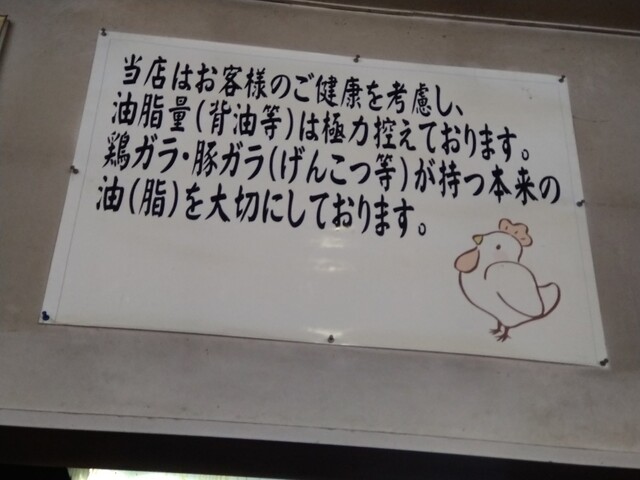 当店はお客様のご健康を考慮し、
油脂量(背油等)は極力控えております。
鶏ガラ・豚ガラ(げんこつ等)が持つ本来の
油(脂)を大切にしております。